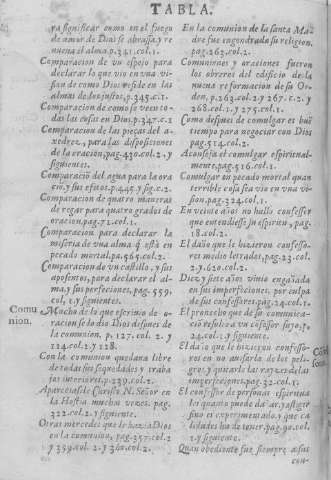 TABLA.
ra significar como en el fuego
de amor de Dios se abrasa, y re
nueua el alma. p. 341. col. 1.
Comparacion de vn espejo para
declarar lo que vio en vna vi-
sion de como Dios reside en las
almas de los justos, p. 345. c. 1.
Comparacion de como se veen to-
das las cosas en Dios. p. 347. c. 2
Comparacion de las pieças del a-
xedrez, para las disposiciones
de la oracion, pag. 430. col. 2. y
siguientes.
Comparaciõ del agua para la ora
ciõ, y sus efetos. p. 445. y sig. c. 2.
Comparacion de quatro maneras
de regar para quatro grados de
oracion, pag. 71. col. 1.
Comparacion para declarar la
miseria de vna alma q̃ està en
pecado mortal. pa. 465. col. 2.
Comparacion de vn castillo, y sus
aposentos, para declarar el al-
ma, y sus perfecciones, pag. 559.
col. 1. y siguientes.
Comu
nion.
Mucho de lo que escriuio de o-
racion se lo dio Dios despues de
la comunion, p. 127. col. 2. y
124. col. 2. y 128.
Con la comunion quedaua libre
de todas sus sequedades y traba
jos interiores. p. 239. col. 2.
Apareciasele Christo N. Señor en
la Hostia muchas vezes. pag.
322. col. 2. y siguiente.
Otras mercedes que le hazia Dios
en la comunion, pag. 357. col. 2
y 359. col. 2. y 360. col. 2.
En la comunion de la santa Ma-
dre fue engendrada su religion,
pag. 263. col. 2.
Comuniones y oraciones fueron
los obreros del edificio de la
nueua reformacion de su Or-
den, p. 264. col. 2. y 267. c. 2. y
268. col. 1. y 275. col. 1.
Como despues de comulgar es buẽ
tiempo para negociar con Dios
pag. 514. col. 2.
Aconseja el comulgar espiritual-
mente, pag. 516. col. 1.
Comulgar en pecado mortal quan
terrible cosa sea vio en vna vi-
sion, pag. 324. col. 1.
En veinte años no hallo confessor
que entendiesse su espiritu, pag.
18. col. 2.
El daño que le hizieron confesso-
res medio letrados, pag. 23. col.
2. y 620. col. 2.
Diez y siete años viuio engañada
en sus imperfecciones, por culpa
de sus confessores, pag. 24. col. 1.
El prouecho que de su comunica-
cio resultò a vn cõfessor suyo, p.
24. col. 2. y siguiente.
El daño que le hizieron confesso-
res en no auisarla de los peli-
gros, y quitarle las rayzes de las
imperfecciones, pag. 32. col. 1.
El confessor de personas espiritua
les quanto puede dañar, y assi gras-
sino es experimentado, y que ca
lidades ha de tener, pag. 90. col.
1. y siguiente.
Quan obediente fue siempre a sus
con-